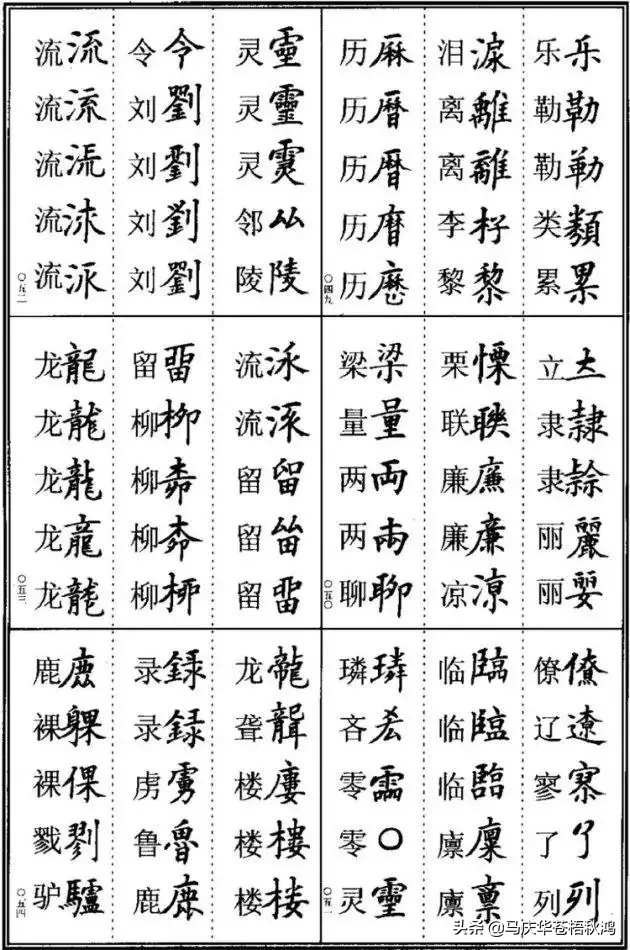 乐乐 勒勒 勒勒 类類 累累
泪淚 离離 离離 李杍 黎黎
历厤 历曆 历暦 历 历歷
〇四九
立 隶隸 隶 丽麗 丽
栗慄 联聨 廉廉 廉廉 凉涼
梁梁 量量 两両 两 聊聊
〇五〇
僚僚 辽遼 寥 了了 列列
临臨 临臨 临臨 廪廩 廪稟
璘璘 吝 零 零〇 灵靈
〇五一
灵靈 灵靈 灵 邻厸 陵陵
令令 刘劉 刘劉 刘劉 刘劉
流流 流流 流 流 流
〇五二
流 流 留留 留 留
留 柳柳 柳 柳 柳桺
龙龍 龙龍 龙龍 龙龍 龙龍
〇五三
龙龍 聋聾 楼廔 楼樓 楼楼
录録 录録 虏虜 鲁魯 鹿
鹿 裸躶 裸倮 戮剹 驴驢
〇五四
头条 @马庆华苍梧秋鸿